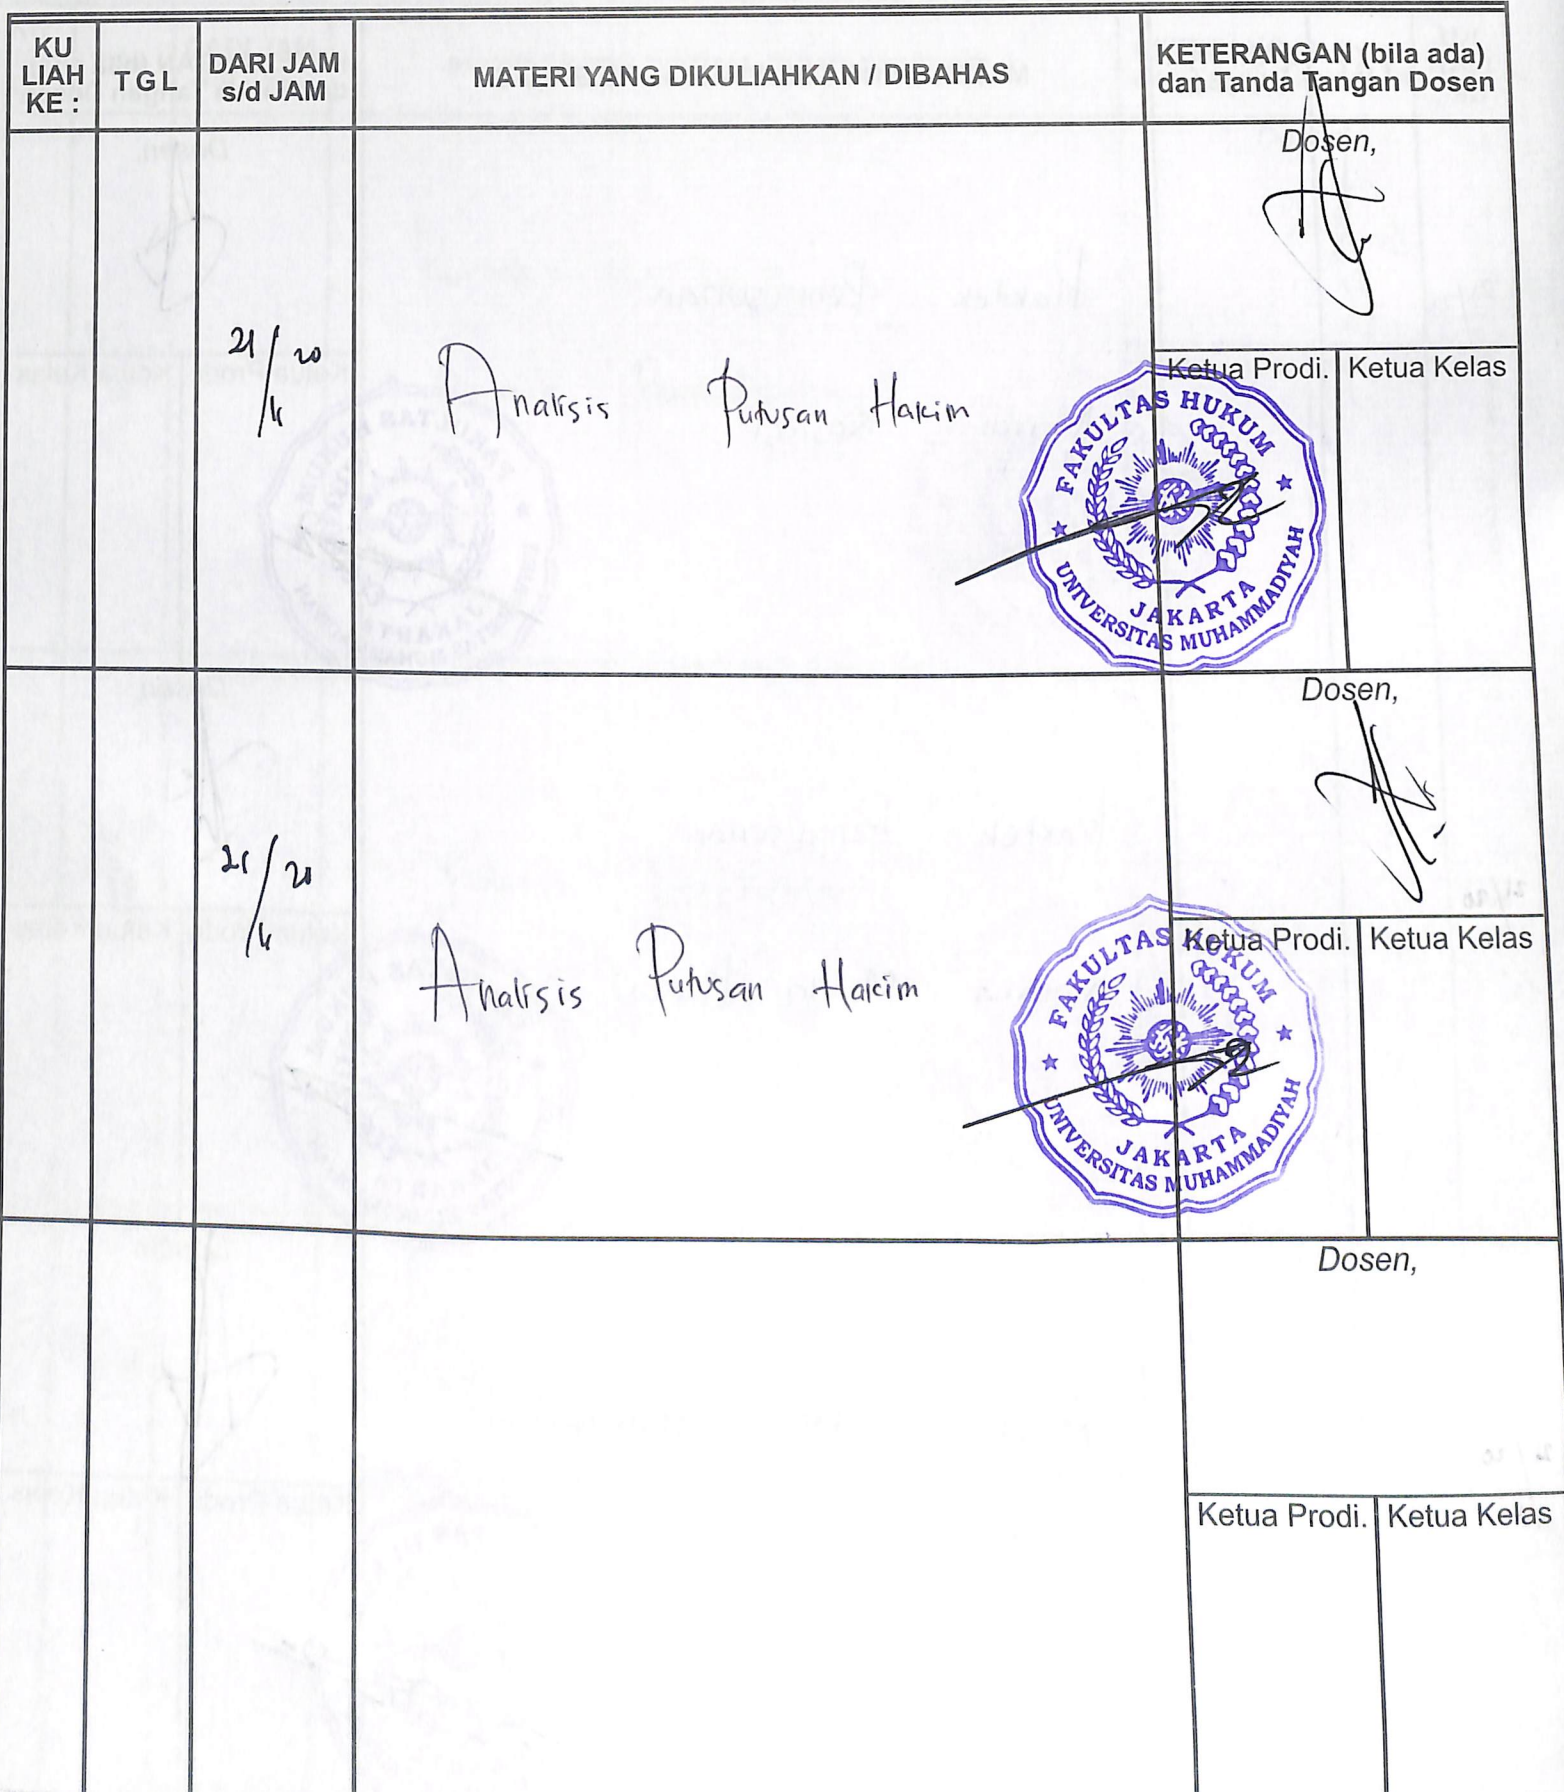 KU
LIAH
KE :
TGL
DARI JAM
s/d JAM
MATERI YANG DIKULIAHKAN / DIBAHAS
KETERANGAN (bila ada)
dan Tanda Tangan Dosen
Dosen,
21/20
Analisis Putusan Hakim
Ketua Prodi.
Ketua Kelas
FAKULTAS HUKUM
JAKARTA
UNIVERSITAS MUHAMMADIYAH
Dosen,
Analisis Putusan Hakim
Ketua Prodi.
Ketua Kelas
FAKULTAS HUKUM
JAKARTA
UNIVERSITAS MUHAMMADIYAH
Dosen,
Ketua Prodi.
Ketua Kelas